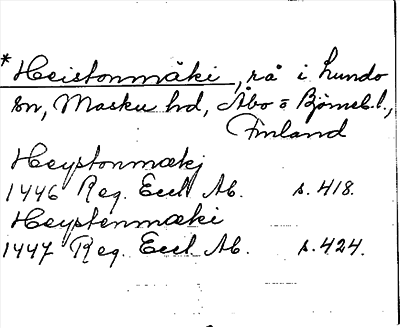 *Heistonmäki, rå i Lundo
sn, Masku hd, Åbo o Björneb.l.,
Finland
Heystonmækj
1446 Reg. Eccl. Ab. s. 418.
Heystenmæki
1447 Reg. Eccl. Ab. s. 424.